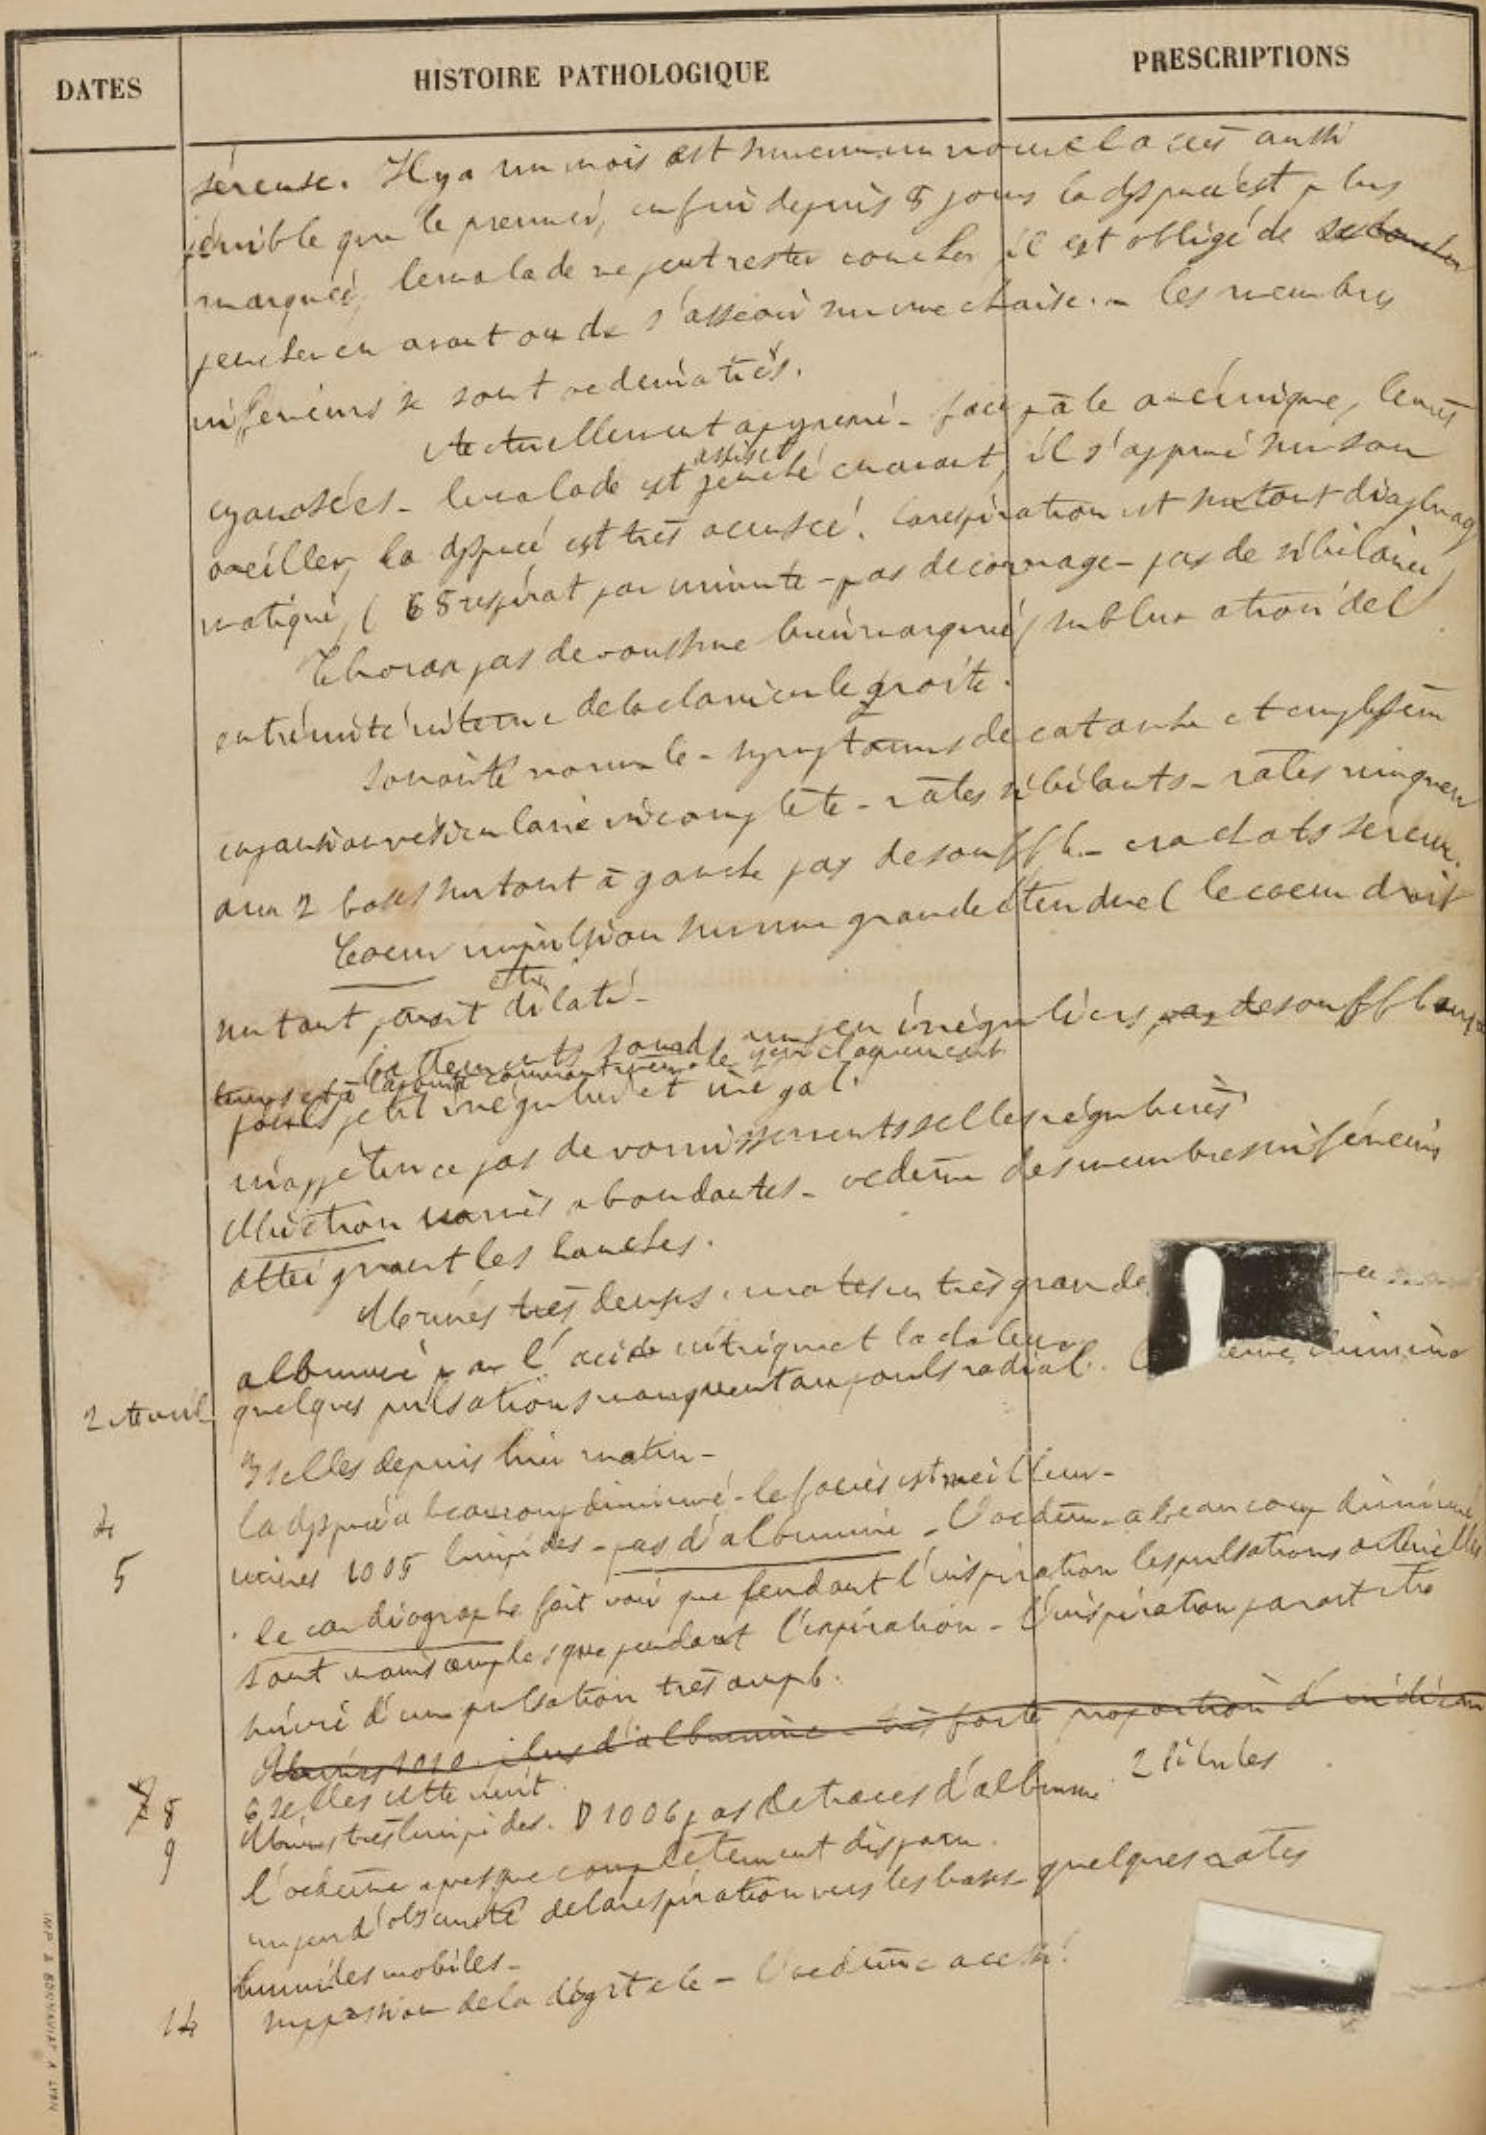 DATES
HISTOIRE PATHOLOGIQUE
PRESCRIPTIONS
séreuse. Il y a un mois est survenu un nouvel accès aussi
pénible que le premier, enfin depuis 8 jours la dyspnée est plus
marquée, le malade ne peut rester coucher il est obligé de
pencher en avant ou de s'asseoir sur une chaise. - les membres
inférieurs se sont oedematiés.
Actuellement apyrexie - faciès pâle anémique, levres
cyanosées - le malade est assis et penché en avant, il s'appuie sur son
oreiller, la dyspnée est très accusée. la respiration est surtout diaphrag
matique, ( 68 respirat par minute - pas de cornage - pas de sibilance)
Thorax pas de voussure bien marquée, subluxation de l
extrémité interne de la clavicule droite.
Sonorité normale - symptomes de catarrhe et emphysem
expansion vésiculaire incomplète - râles sibilants - râles muqueux
aux 2 bases surtout à gauche pas de souffle - crachats sereux.
Coeur impulsion sur une grande étendue ( le coeur droit
surtout parait etre dilaté -
battements sourds un peu irréguliers pas de souffle
pouls petit irrégulier et inégal.
inappétence pas de vomissements selles régulières
Miction urines abondantes - oedeme des membres inférieurs
atteignant les hanches.
Urines très denses. très grande
albumine par l'acide nitrique et la chaleur
2 Avril quelques pulsations manquent au pouls radial. diminué
3 selles depuis hier matin -
4 la dyspnée a beaucoup diminué - le faciès est meilleur -
5 urines 1005 limpides - pas d'albumine - L'oedeme a beaucoup diminué
le cardiographe fait voir que pendant l'inspiration les pulsations artérielles
sont moins amples que pendant l'expiration - L'inspiration parait etre
suivie d'une pulsation très ample.
Urines 1010 plus d'albumine - très forte proportion d'indican
7 8 6 selles cette nuit. 2 pilules
9 Urines très limpides. D 1006 pas de traces d'albumine
l'oedeme a presque complètement disparu.
un peu d'obscurité de la respiration vers les bases quelques râles
humides mobiles -
14 suppression de la digitale - L'oedème a cessé.
IMP A BONNAVIAT A LYON